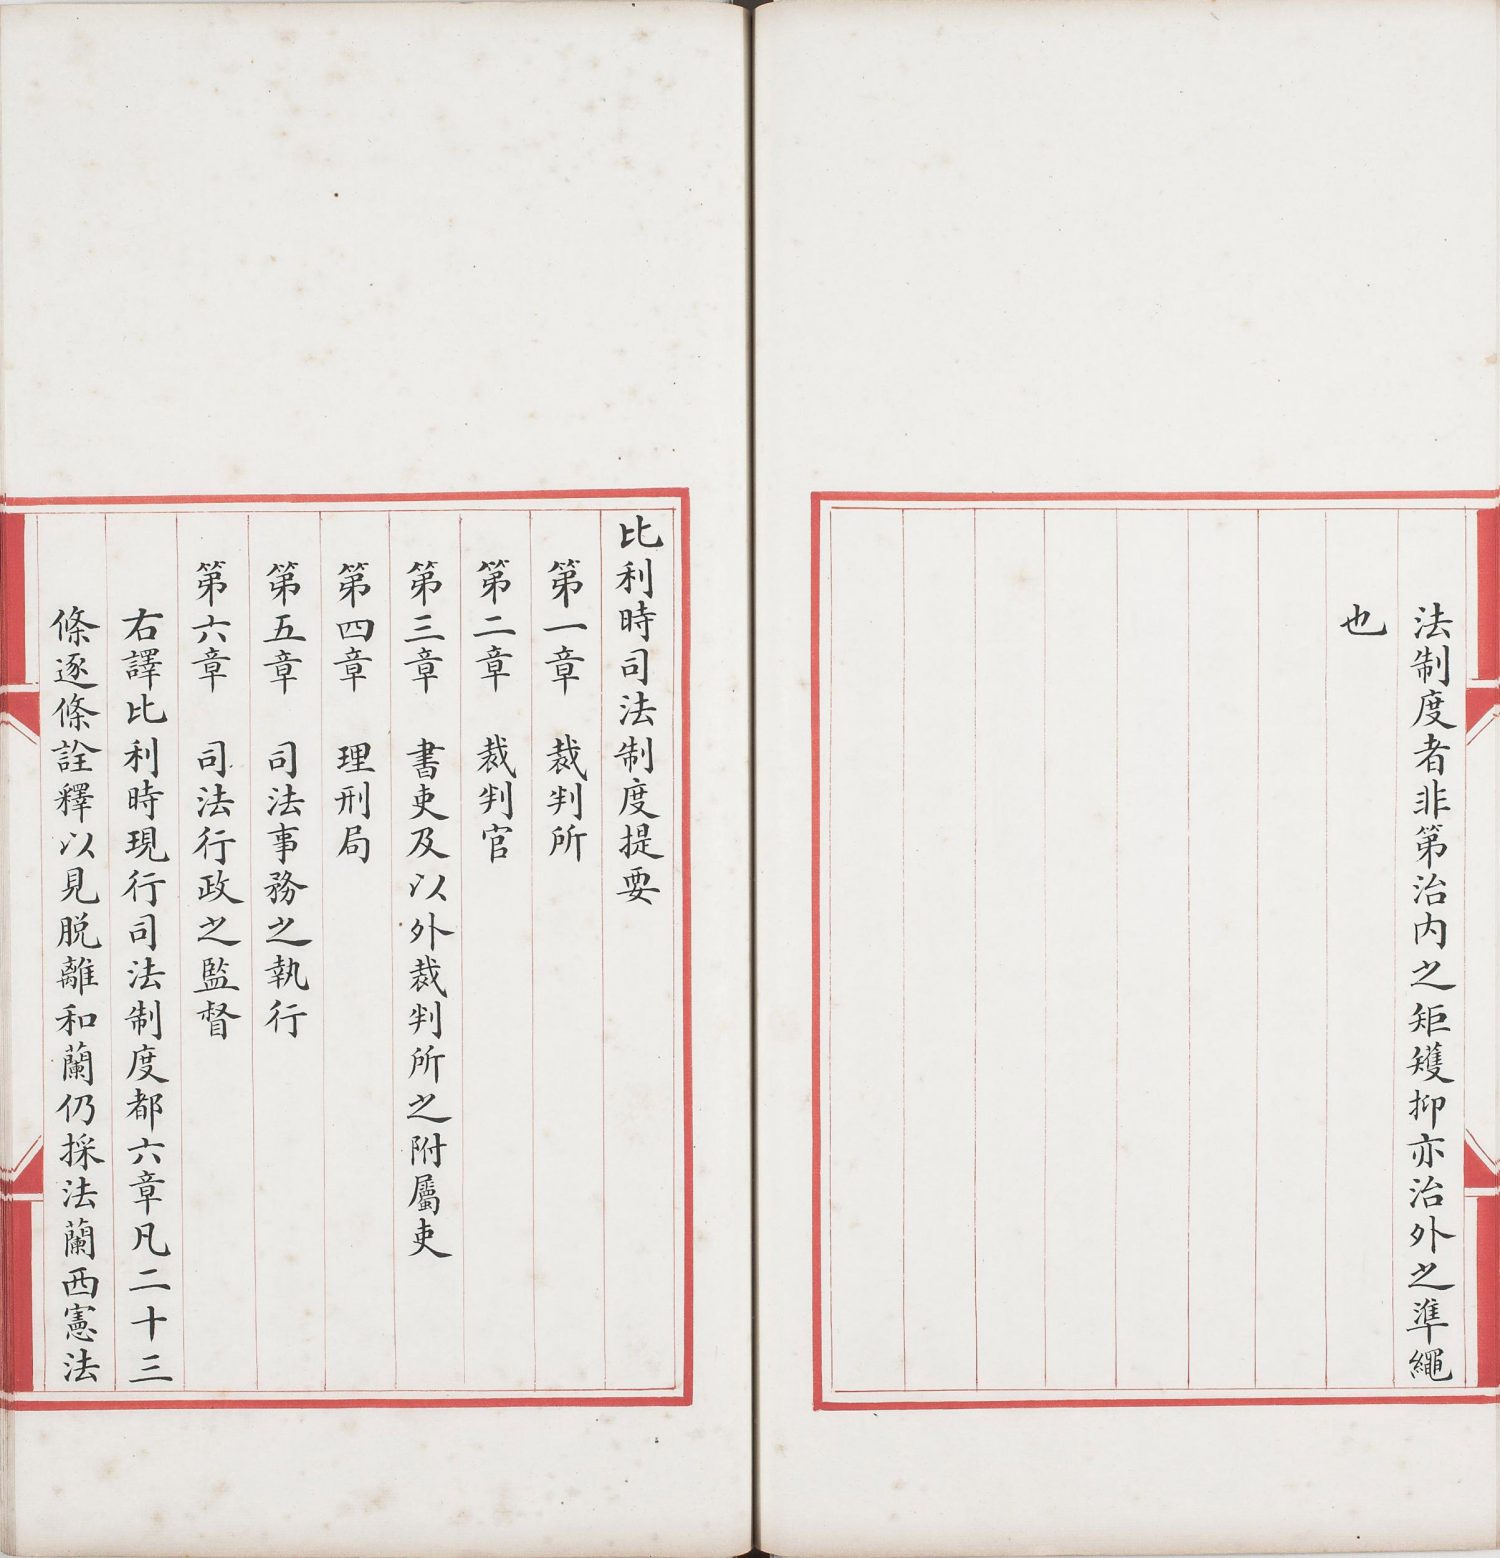 法制度者非第治内之矩矱抑亦治外之準繩
也
比利時司法制度提要
第一章　裁判所
第二章　裁判官
第三章　書吏及以外裁判所之附屬吏
第四章　理刑局
第五章　司法事務之執行
第六章　司法行政之監督
右譯比利時現行司法制度都六章凡二十三
條逐條詮釋以見脱離和蘭仍採法蘭西憲法